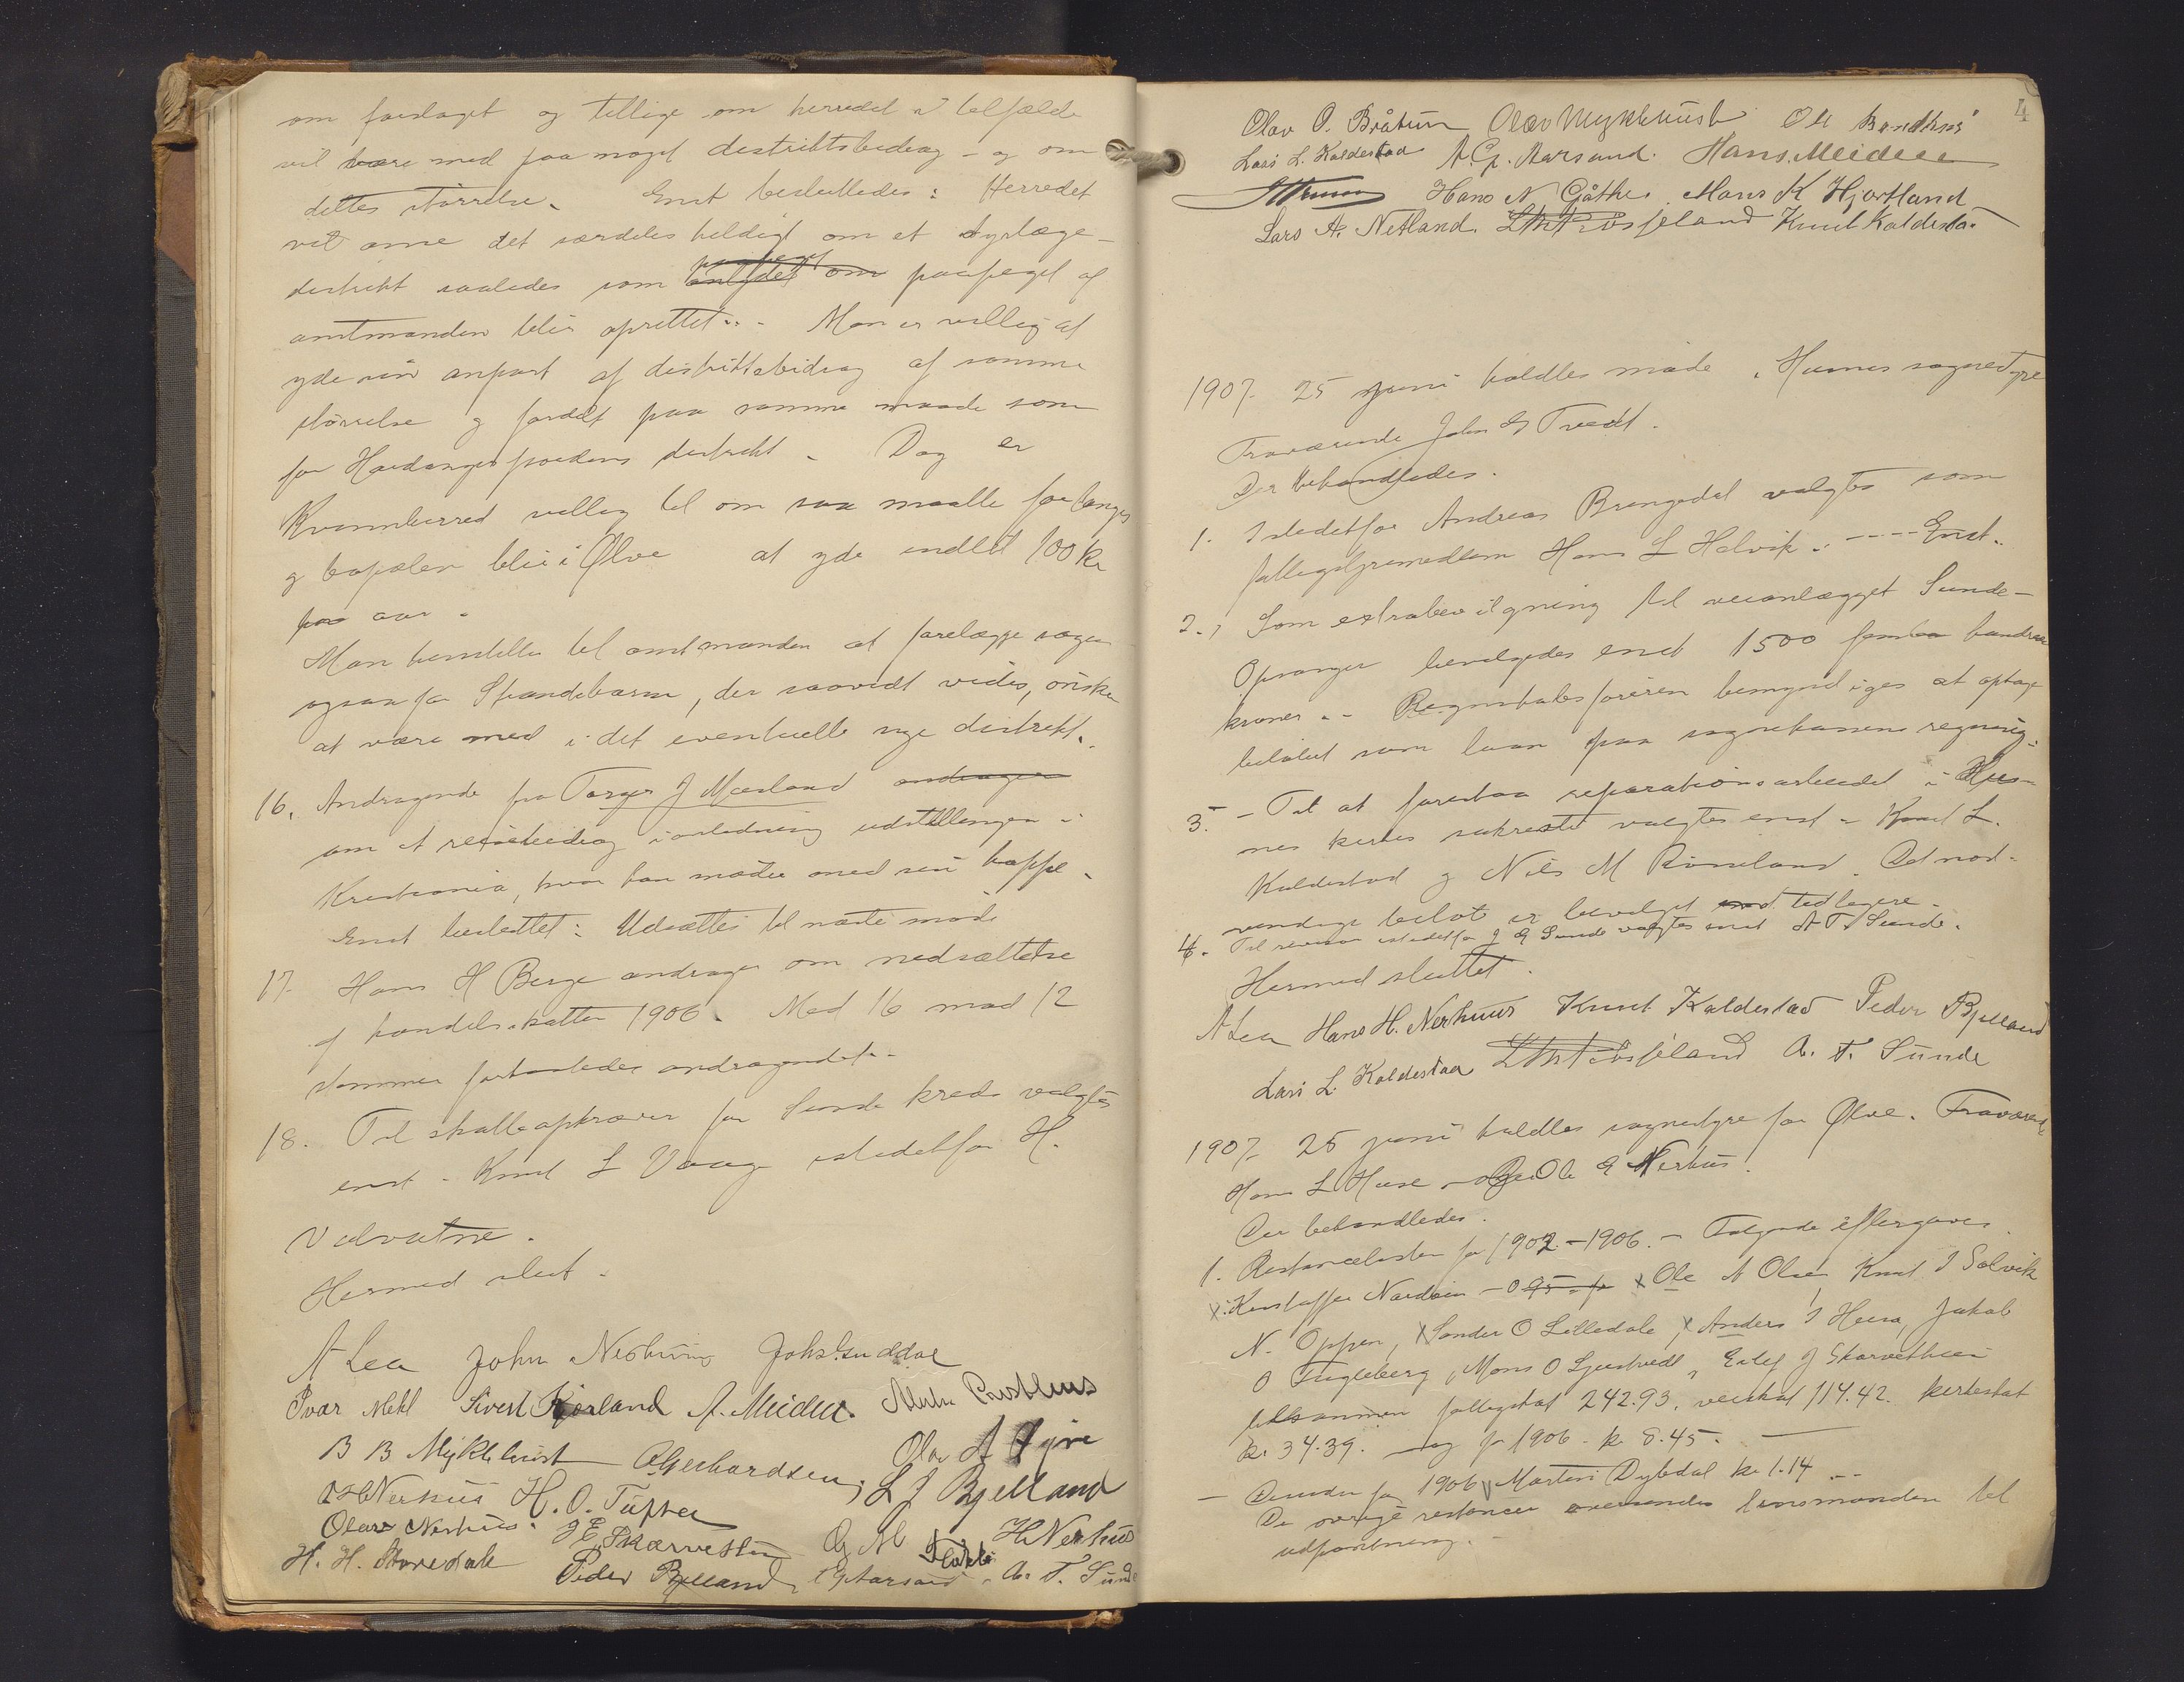 om forslaget og tillige om herredet i tilfælde
vil være med paa noget distriktsbidrag – og om
dettes størrelse. Enst besluttedes: Herredet
vil anse det særdeles heldigt om et dyrlæge-
distrikt saaledes som paapeget af
amtmanden blir oprettet. – Man er villig at
yde sin anpart af distriktsbidrag af samme
størrelse og fordelt paa samme maade som
for Hardangerfjordens distrikt. Dog er
Kvinnherred villig til om saa maatte forlanges
og bopælen blir i Ølve at yde indtil 100 kr
pro aar.
Man henstiller til amtmanden at forelægge sagen
ogsaa for Strandebarm, der saavidt vides, ønsker
at være med i det eventuelle nye distrikt.
16. Andragende fra Torger J Mæland andrager
om et reisebidrag i anledning udstillingen i
Kristiania, hvor han møder med sin hoppe.
Enst besluttet: Udsættes til næste møde
17. Hans H Berge andrager om nedsættelse
af handelsskatten 1906. Med 16 mod 12
stemmer forkastedes andragendet. –
18. Til skatteopkræver for Sunde kreds valgtes
enst. Knut L Vaage istedetfor H.
Valvatne.
Hermed slut.
A Lea John Nerhuus Johs Guddal
Ivar Mehl Sivert Kjerland A. Meidell.
B B Myklebust A Gerhardsen. Ola A Fyre
Nerhus H. O. Tufter L J Bjelland
Olave Nerhus. J E Skarvethun G M H Nerhus
H. H. Peder Bjelland A G Aarsand. A. T. Sunde
4
Olav O. Bråtun Olav Myklebust Ole
Lars L. Kaldestad A. G. Aarsand. Hans Meidell
Hans N Gåthe. Mons K Hjortland
Lars A. Netland. Knut Kaldestad
1907. 25 juni holdtes møde i Husnes sognestyre
Fraværende John G Tvedt.
Der behandledes.
1. Istedetfor Andreas Bringedal valgtes som
fattigstyremedlem Hans L Helvik. ---- Enst.
2. Som extrabevilgning til veianlægget Sunde –
Opsanger bevilgedes enst 1500 femten hundrede
kroner. – Regnskabsføreren bemyndiges at optage
beløbet som laan paa sognekassens regning.
3. – Til at forestaa reparationsarbeidet i Hus-
nes kirkes sakresti valgtes enst – Knut L.
Kaldestad og Nils M Røineland. Det nød-
vendige beløb er bevilget tidligere.
4. Til revisor istedetfor J G Sunde valgtes enst A T Sunde.
Hermed sluttet.
A Lea Hans H. Nerhuus Knut Kaldestad Peder Bjelland
Lars L. Kaldestad A. T. Sunde
1907. 25 juni holdtes sognestyre for Ølve. Fraværende
Hans L Huse – og Ole G Nerhus.
Der behandledes.
1. Restancelisten for 1902 – 1906. – Følgende eftergaves
x: Kristoffer Nordvin – 0 95 x Ole A Olsen, Knut J Solvik
N. Oppen, x Sander O Lilledale, x Anders J Heura, Jakob
O Fugleberg, Mons O Ljostvedt, Eilef J Skarvethun
tilsammen fattigskat 242.93, veiskat 114.42. kirkeskat
kr 34.39. – og for 1906. kr 8.45.
– Desuden for 1906 Martin Dybdal kr 1.14. –
De øvrige restancer oversendes lensmanden til
udpantning. –